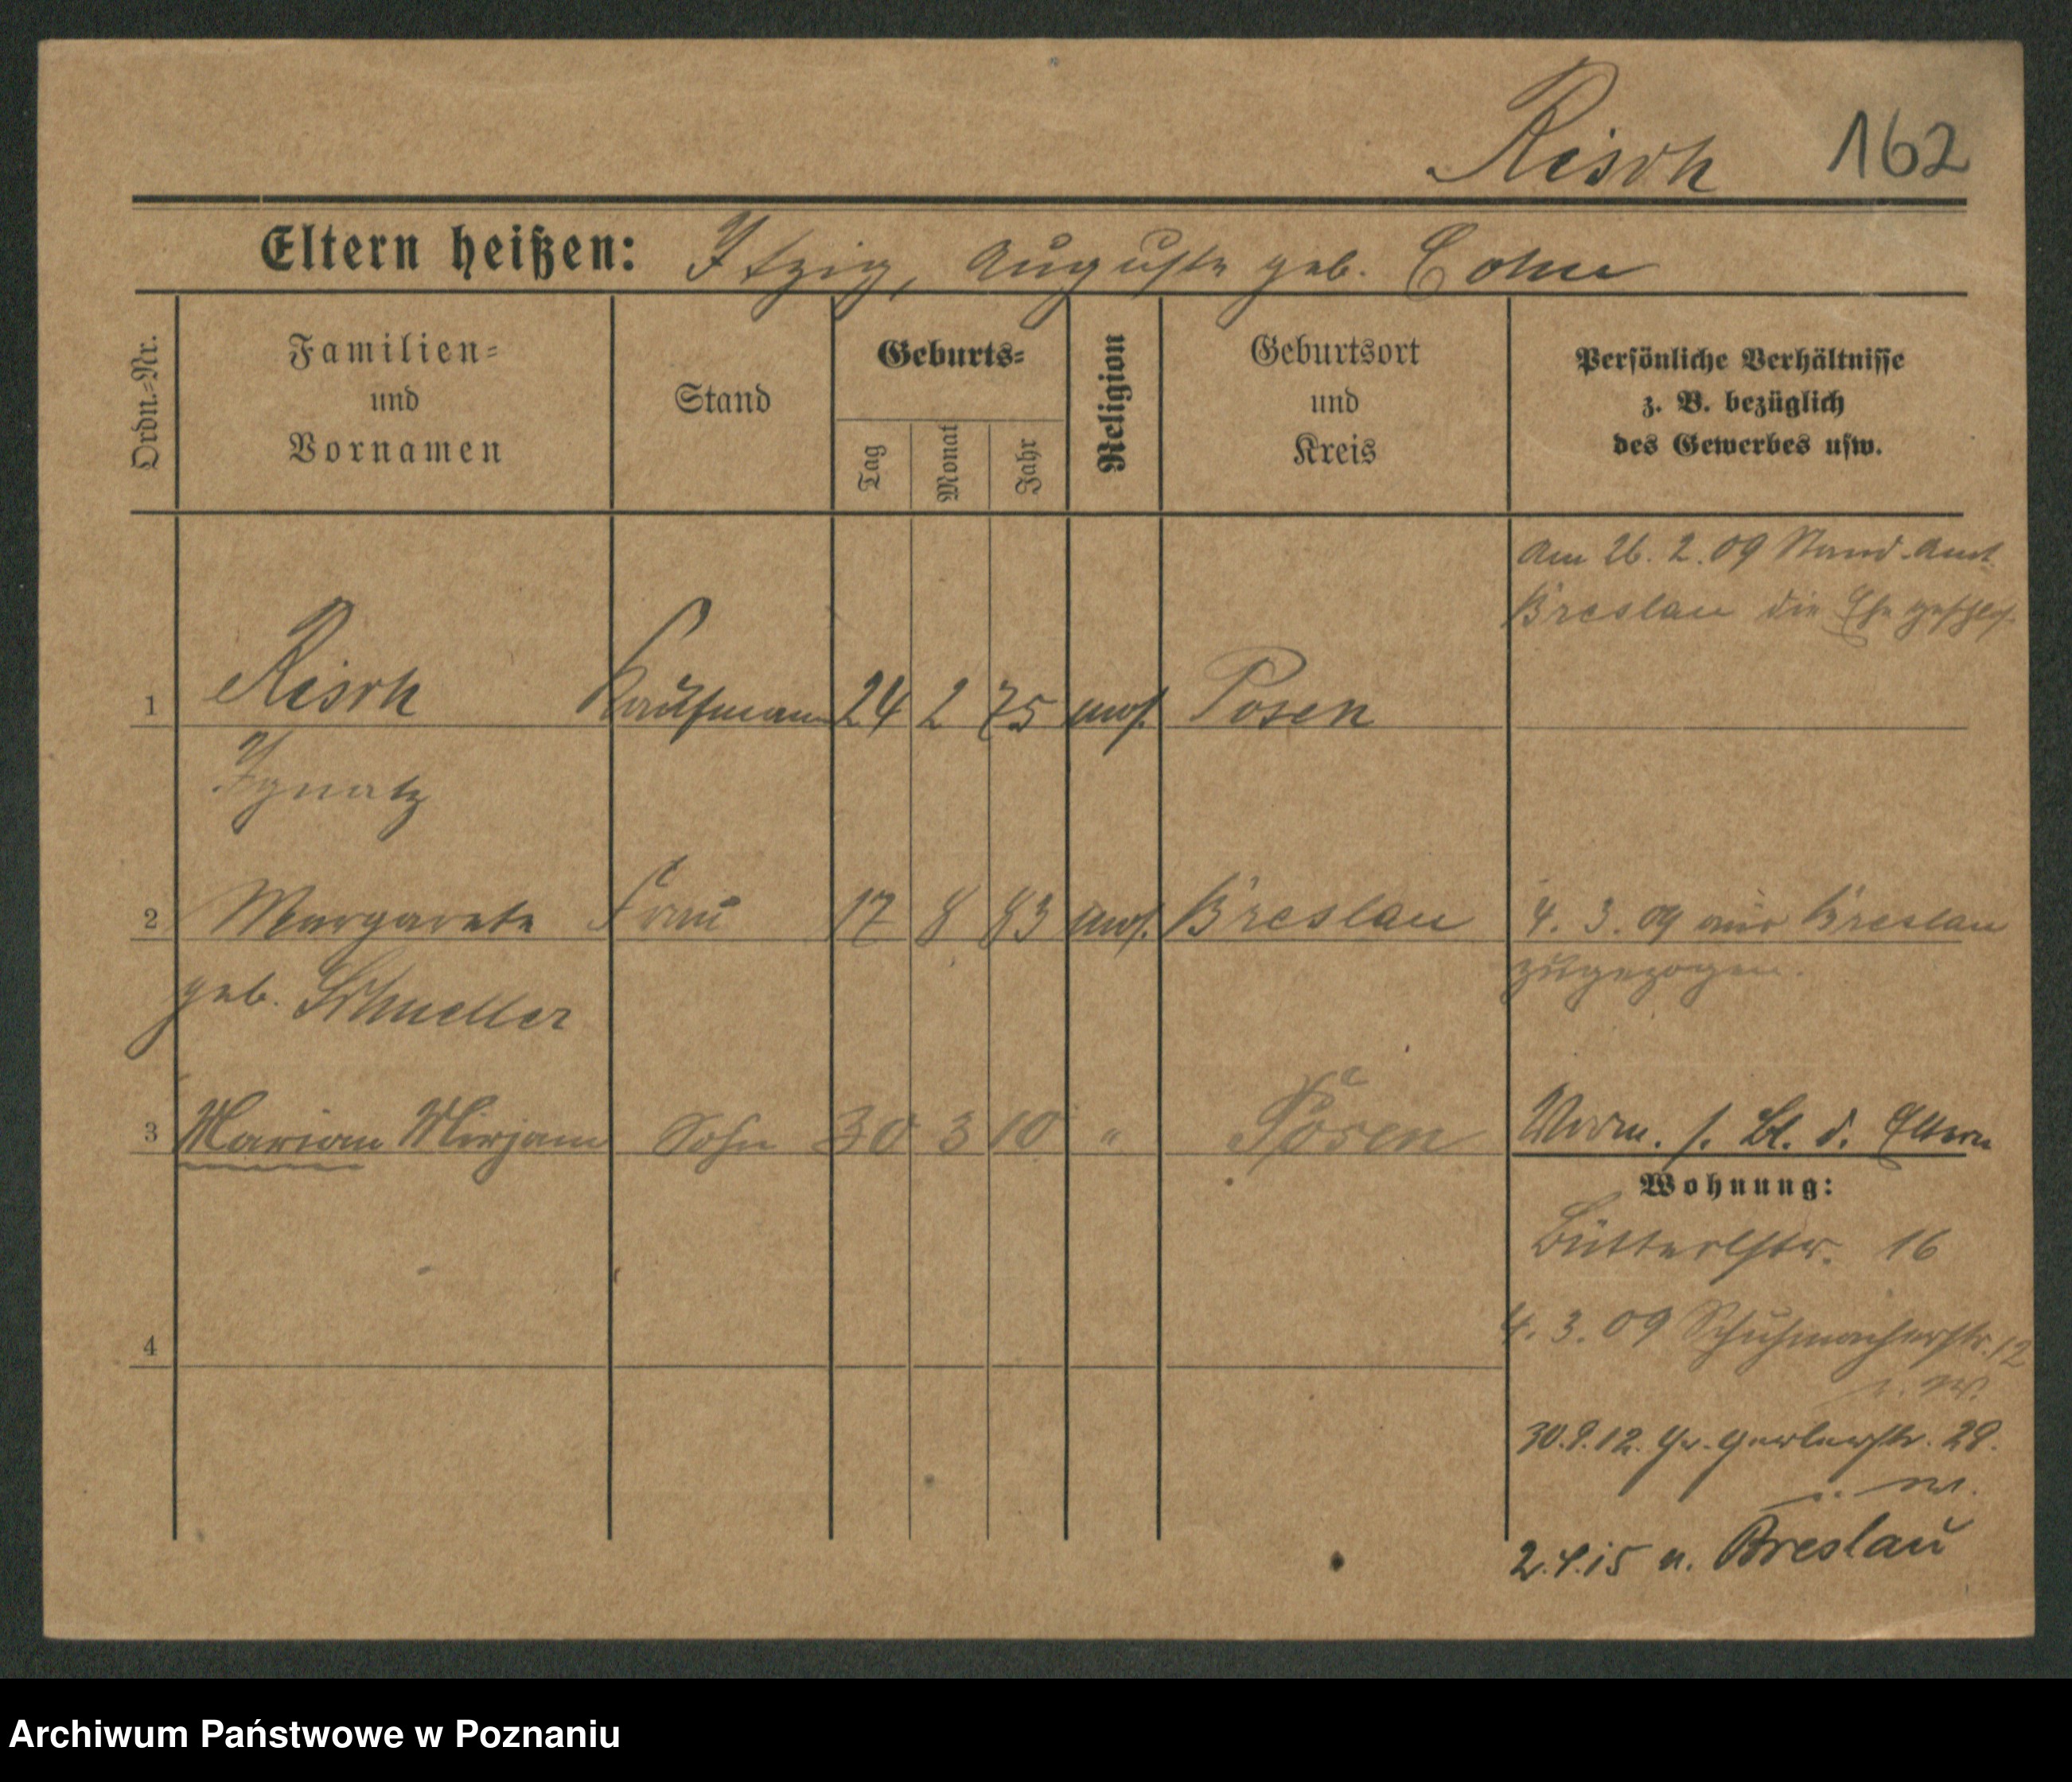 Risch 162
Eltern heißen: Itzig, Auguste geb. Cohn
Ordn.=Nr.
Familien=
und
Vornamen
Stand
Geburts=
Tag
Monat
Jahr
Religion
Geburtsort
und
Kreis
Persönliche Verhältnisse
z. B. bezüglich
des Gewerbes usw.
Am 26. 2. 09 Stand. Amt
Breslau die Ehe geschl.
1 Risch Kaufmann 24 2 75 mos. Posen
Ignatz
2 Margarete Frau 17 8 83 mos. Breslau 4. 3. 09 aus Breslau
geb. Schneller zugezogen.
3 Marian Mirjam Sohn 30 3 10 " Posen Verm. s. Bl. d. Eltern
Wohnung:
Büttelstr. 16
4
4. 3. 09 Schuhmacherstr. 12
30.9.12. Gr. Gerberstr. 28.
2.4.15 n. Breslau
Archiwum Państwowe w Poznaniu